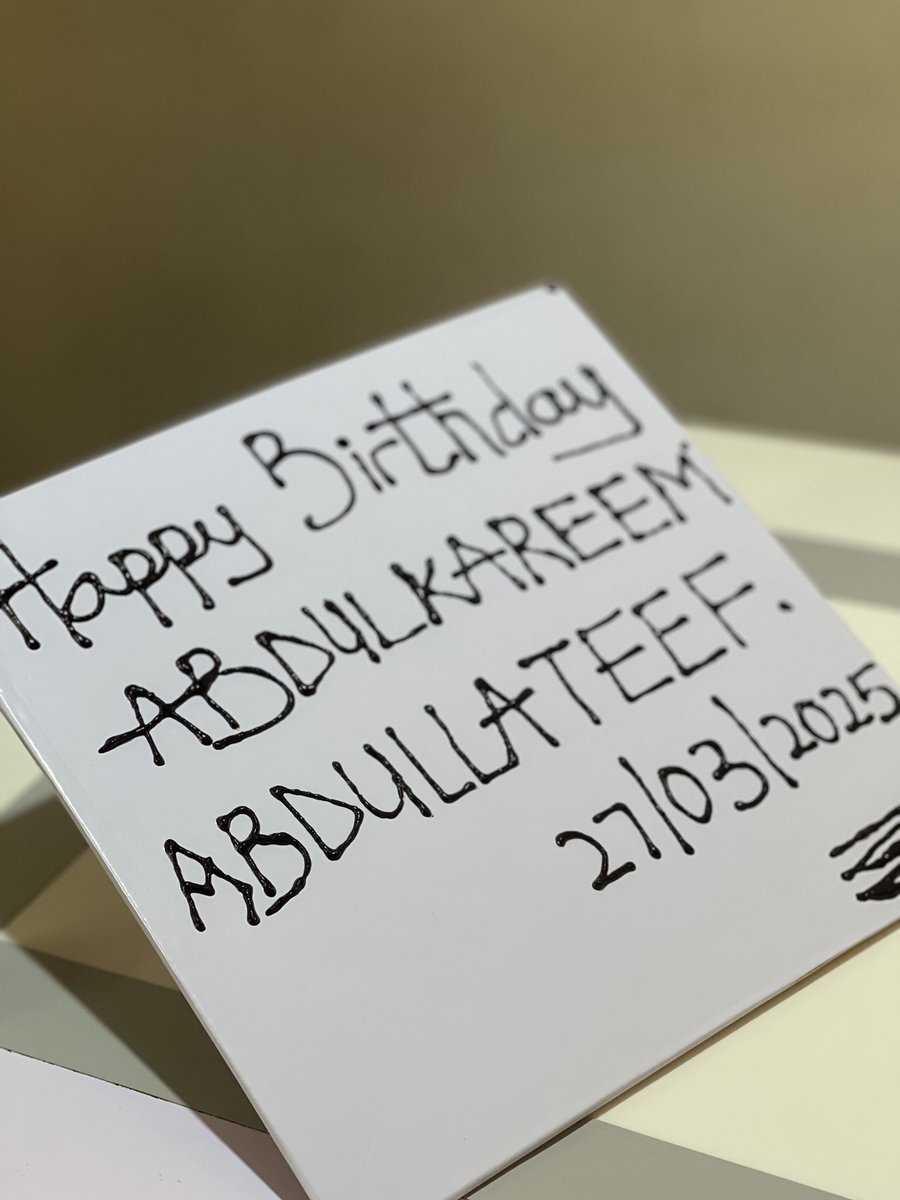 Happy Birthday
ABDULKAREEM
ABDULLATEEF.
27/03/2025